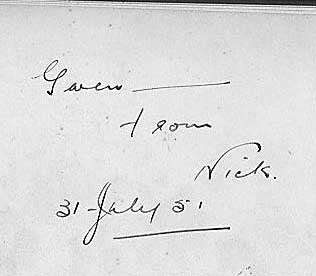 Gwen —
from
Nick.
31-July 51